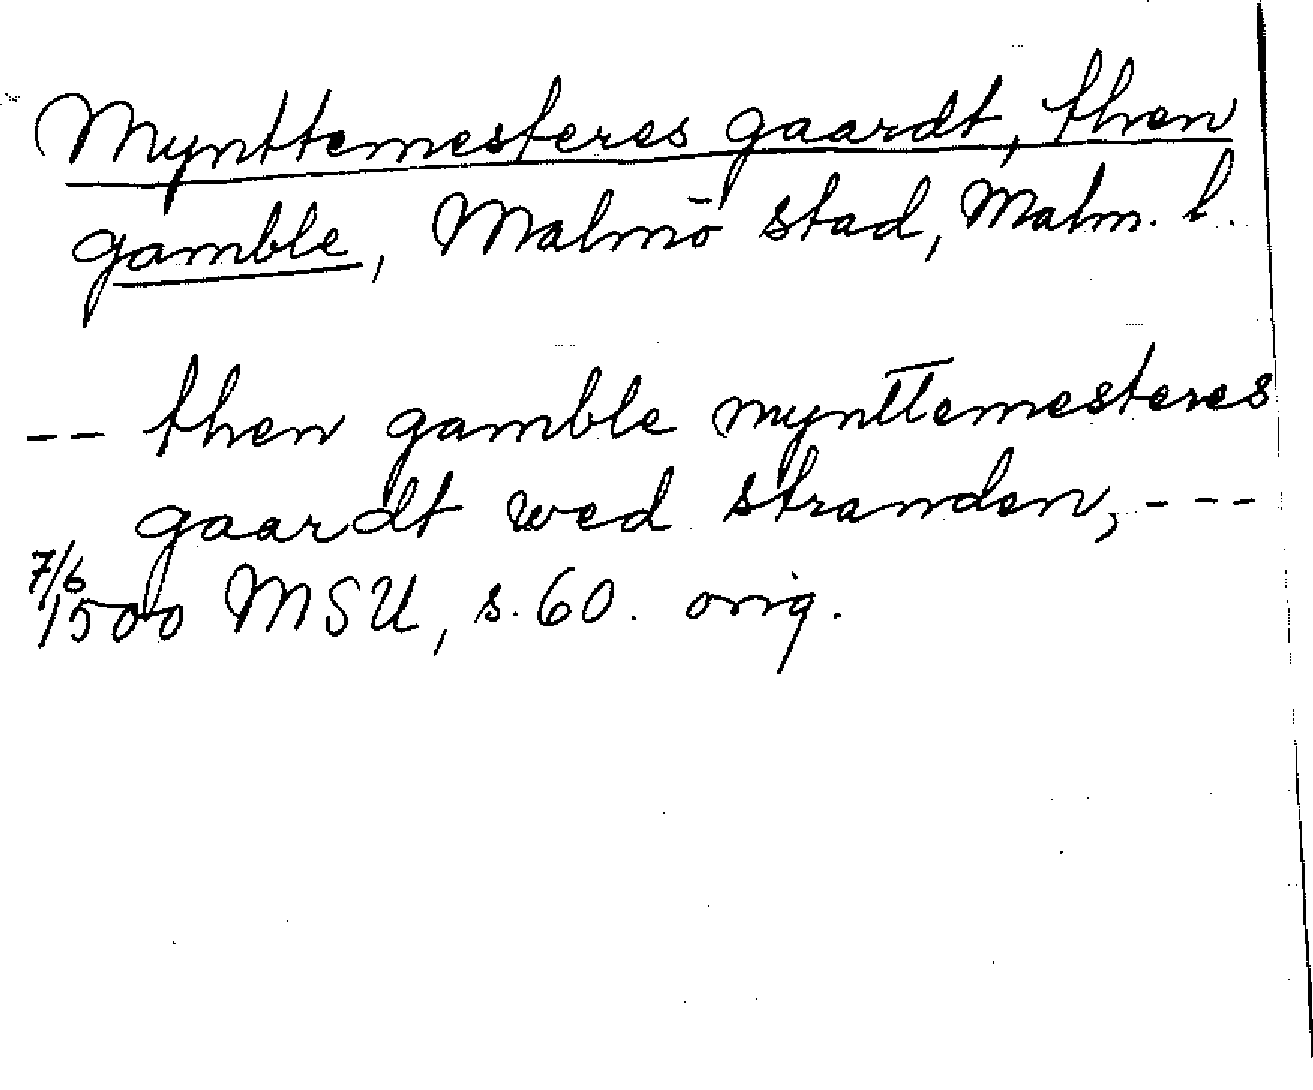 Mynttemesteres gaardt, then
gamble, Malmö stad, Malm. l.
-- then gamble mynttemesteres
gaardt wed stranden, ---
7/6 1500 MSU, s. 60. orig.